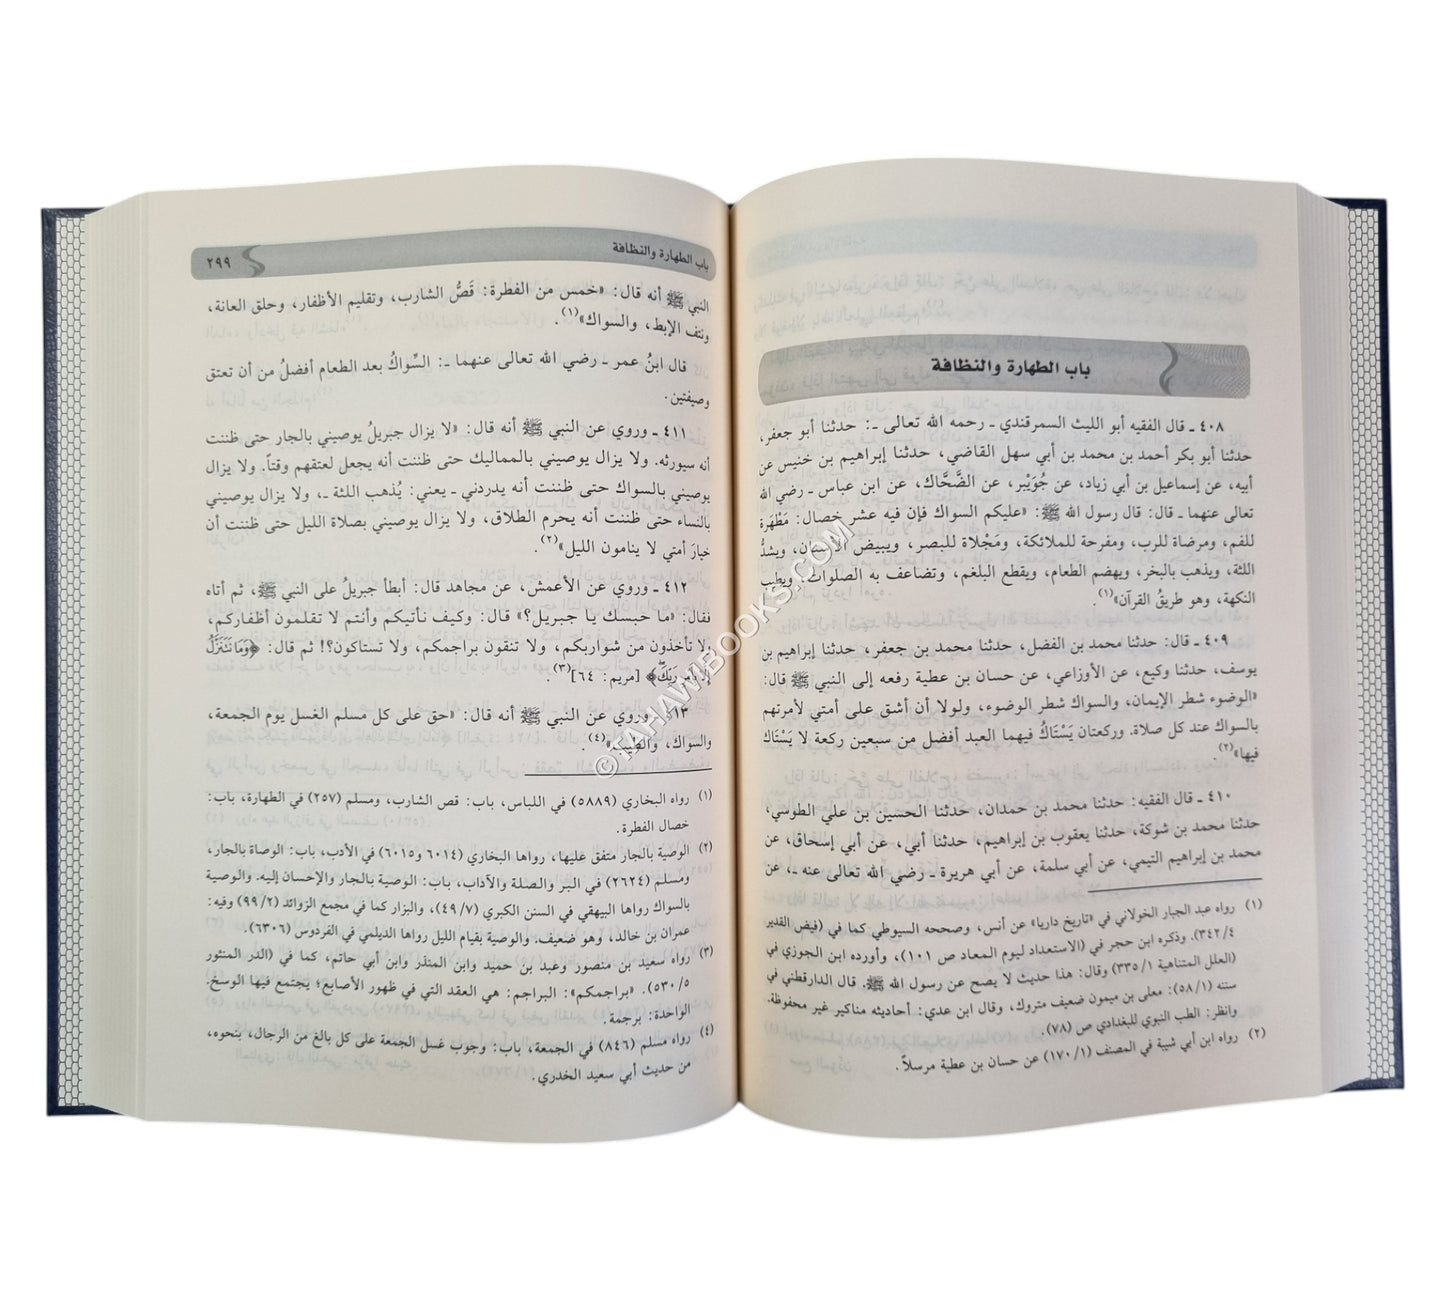 باب الطهارة والنظافة
٤٠٨ ـ قال الفقيه أبو الليث السمرقندي ـ رحمه الله تعالى ـ: حدثنا أبو جعفر،
حدثنا أبو بكر أحمد بن محمد بن أبي سهل القاضي، حدثنا إبراهيم بن خنيس عن
أبيه، عن إسماعيل بن أبي زياد، عن جُوَيْبر، عن الضَّحَّاك، عن ابن عباس ـ رضي الله
تعالى عنهما ـ قال: قال رسول الله ﷺ: «عليكم السواك فإن فيه عشر خصال: مَطْهَرة
للفم، ومرضاة للرب، ومفرحة للملائكة، ومَجْلاة للبصر، ويبيض الأسنان، ويشدُّ
اللثة، ويذهب بالبخر، ويهضم الطعام، ويقطع البلغم، وتضاعف به الصلوات، ويطيب
النكهة، وهو طريقُ القرآن»(١).
٤٠٩ ـ قال: حدثنا محمد بن الفضل، حدثنا محمد بن جعفر، حدثنا إبراهيم بن
يوسف، حدثنا وكيع، عن الأوزاعي، عن حسان بن عطية رفعه إلى النبي ﷺ قال:
«الوضوء شطر الإيمان، والسواك شطر الوضوء، ولولا أن أشق على أمتي لأمرتهم
بالسواك عند كل صلاة. وركعتان يَسْتاكُ فيهما العبد أفضل من سبعين ركعة لا يَسْتاك
فيها»(٢).
٤١٠ ـ قال الفقيه: حدثنا محمد بن حمدان، حدثنا الحسين بن علي الطوسي،
حدثنا محمد بن شوكة، حدثنا يعقوب بن إبراهيم، حدثنا أبي، عن أبي إسحاق، عن
محمد بن إبراهيم التيمي، عن أبي سلمة، عن أبي هريرة ـ رضي الله تعالى عنه ـ، عن
(١) رواه عبد الجبار الخولاني في «تاريخ داريا» عن أنس، وصححه السيوطي كما في (فيض القدير
٣٤٢/٤). وذكره ابن حجر في (الاستعداد ليوم المعاد ص ١٠١)، وأورده ابن الجوزي في
(العلل المتناهية ٣٣٥/١) وقال: هذا حديث لا يصح عن رسول الله ﷺ. قال الدارقطني في
سننه (٥٨/١): معلى بن ميمون ضعيف متروك، وقال ابن عدي: أحاديثه مناكير غير محفوظة.
وانظر: الطب النبوي للبغدادي ص (٧٨).
(٢) رواه ابن أبي شيبة في المصنف (١٧٠/١) عن حسان بن عطية مرسلاً.
باب الطهارة والنظافة ٢٩٩
النبي ﷺ أنه قال: «خمس من الفطرة: قَصُّ الشارب، وتقليم الأظفار، وحلق العانة،
ونتف الإبط، والسواك»(١).
قال ابنُ عمر ـ رضي الله تعالى عنهما ـ: السِّواكُ بعد الطعام أفضلُ من أن تعتق
وصيفتين.
٤١١ ـ وروي عن النبي ﷺ أنه قال: «لا يزال جبريلُ يوصيني بالجار حتى ظننت
أنه سيورثه. ولا يزال يوصيني بالمماليك حتى ظننت أنه يجعل لعتقهم وقتاً. ولا يزال
يوصيني بالسواك حتى ظننت أنه يدردني ـ يعني: يُذهب اللثة ـ، ولا يزال يوصيني
بالنساء حتى ظننت أنه يحرم الطلاق، ولا يزال يوصيني بصلاة الليل حتى ظننت أن
خيارَ أمتي لا ينامون الليل»(٢).
٤١٢ ـ وروي عن الأعمش، عن مجاهد قال: أبطأ جبريلُ على النبي ﷺ، ثم أتاه
فقال: «ما حبسك يا جبريل؟» قال: وكيف نأتيكم وأنتم لا تقلمون أظفاركم،
ولا تأخذون من شواربكم، ولا تنقون براجمكم، ولا تستاكون؟! ثم قال: ﴿وَمَا نَتَنَزَّلُ
إِلَّا بِأَمْرِ رَبِّكَ﴾ [مريم: ٦٤](٣).
٤١٣ ـ وروي عن النبي ﷺ أنه قال: «حق على كل مسلم الغسل يوم الجمعة،
والسواك، والطيب»(٤).
(١) رواه البخاري (٥٨٨٩) في اللباس، باب: قص الشارب، ومسلم (٢٥٧) في الطهارة، باب:
خصال الفطرة.
(٢) الوصية بالجار متفق عليها، رواها البخاري (٦٠١٤ و٦٠١٥) في الأدب، باب: الوصاة بالجار،
ومسلم (٢٦٢٤) في البر والصلة والآداب، باب: الوصية بالجار والإحسان إليه. والوصية
بالسواك رواها البيهقي في السنن الكبرى (٤٩/٧)، والبزار كما في مجمع الزوائد (٩٩/٢) وفيه:
عمران بن خالد، وهو ضعيف. والوصية بقيام الليل رواها الديلمي في الفردوس (٦٣٠٦).
(٣) رواه سعيد بن منصور وعبد بن حميد وابن المنذر وابن أبي حاتم، كما في (الدر المنثور
٥٣٠/٥). «براجمكم»: البراجم: هي العقد التي في ظهور الأصابع؛ يَجتمع فيها الوسخ.
الواحدة: برجمة.
(٤) رواه مسلم (٨٤٦) في الجمعة، باب: وجوب غسل الجمعة على كل بالغ من الرجال، بنحوه،
من حديث أبي سعيد الخدري.
©TAHAWIBOOKS.COM